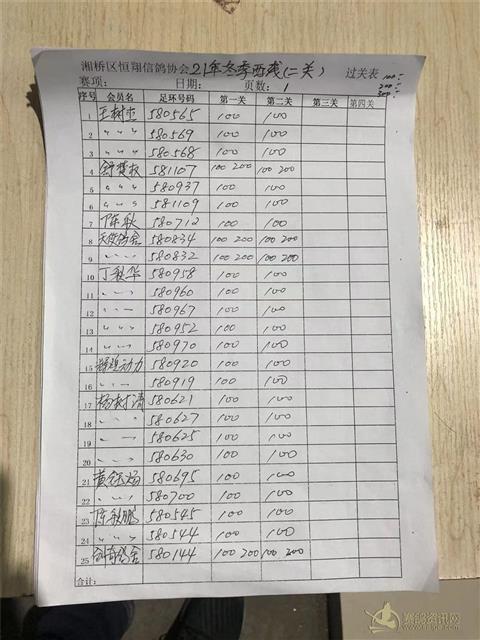 湘桥区恒翔信鸽协会21年冬季西线(二关) 过关表
赛项: 日期: 页数: 1 100 200 300
序号 会员名 足环号码 第一关 第二关 第三关 第四关
1 王树 580565 100 100
2 〃 〃 〃 580569 100 100
3 〃 〃 〃 580568 100 100
4 581107 100 200 100 200
5 〃 〃 〃 580937 100 100
6 〃 〃 〃 581109 100 100
7 陈秋 580712 100 100
8 580834 100 200 100 200
9 〃 〃 〃 580832 100 200 100 200
10 丁秋华 580958 100 100
11 〃 〃 〃 580960 100 100
12 〃 〃 〃 580967 100 100
13 〃 〃 〃 580952 100 100
14 〃 〃 〃 580970 100 100
15 辉煌动力 580920 100 100
16 〃 〃 〃 580919 100 100
17 杨树清 580621 100 100
18 〃 〃 〃 580627 100 100
19 〃 〃 580625 100 100
20 〃 〃 〃 580630 100 100
21 黄 580695 100 100
22 〃 〃 〃 580700 100 100
23 陈秋鹏 580545 100 100
24 〃 〃 〃 580544 100 100
25 580144 100 200 100 200
合计:
赛鸽资讯网